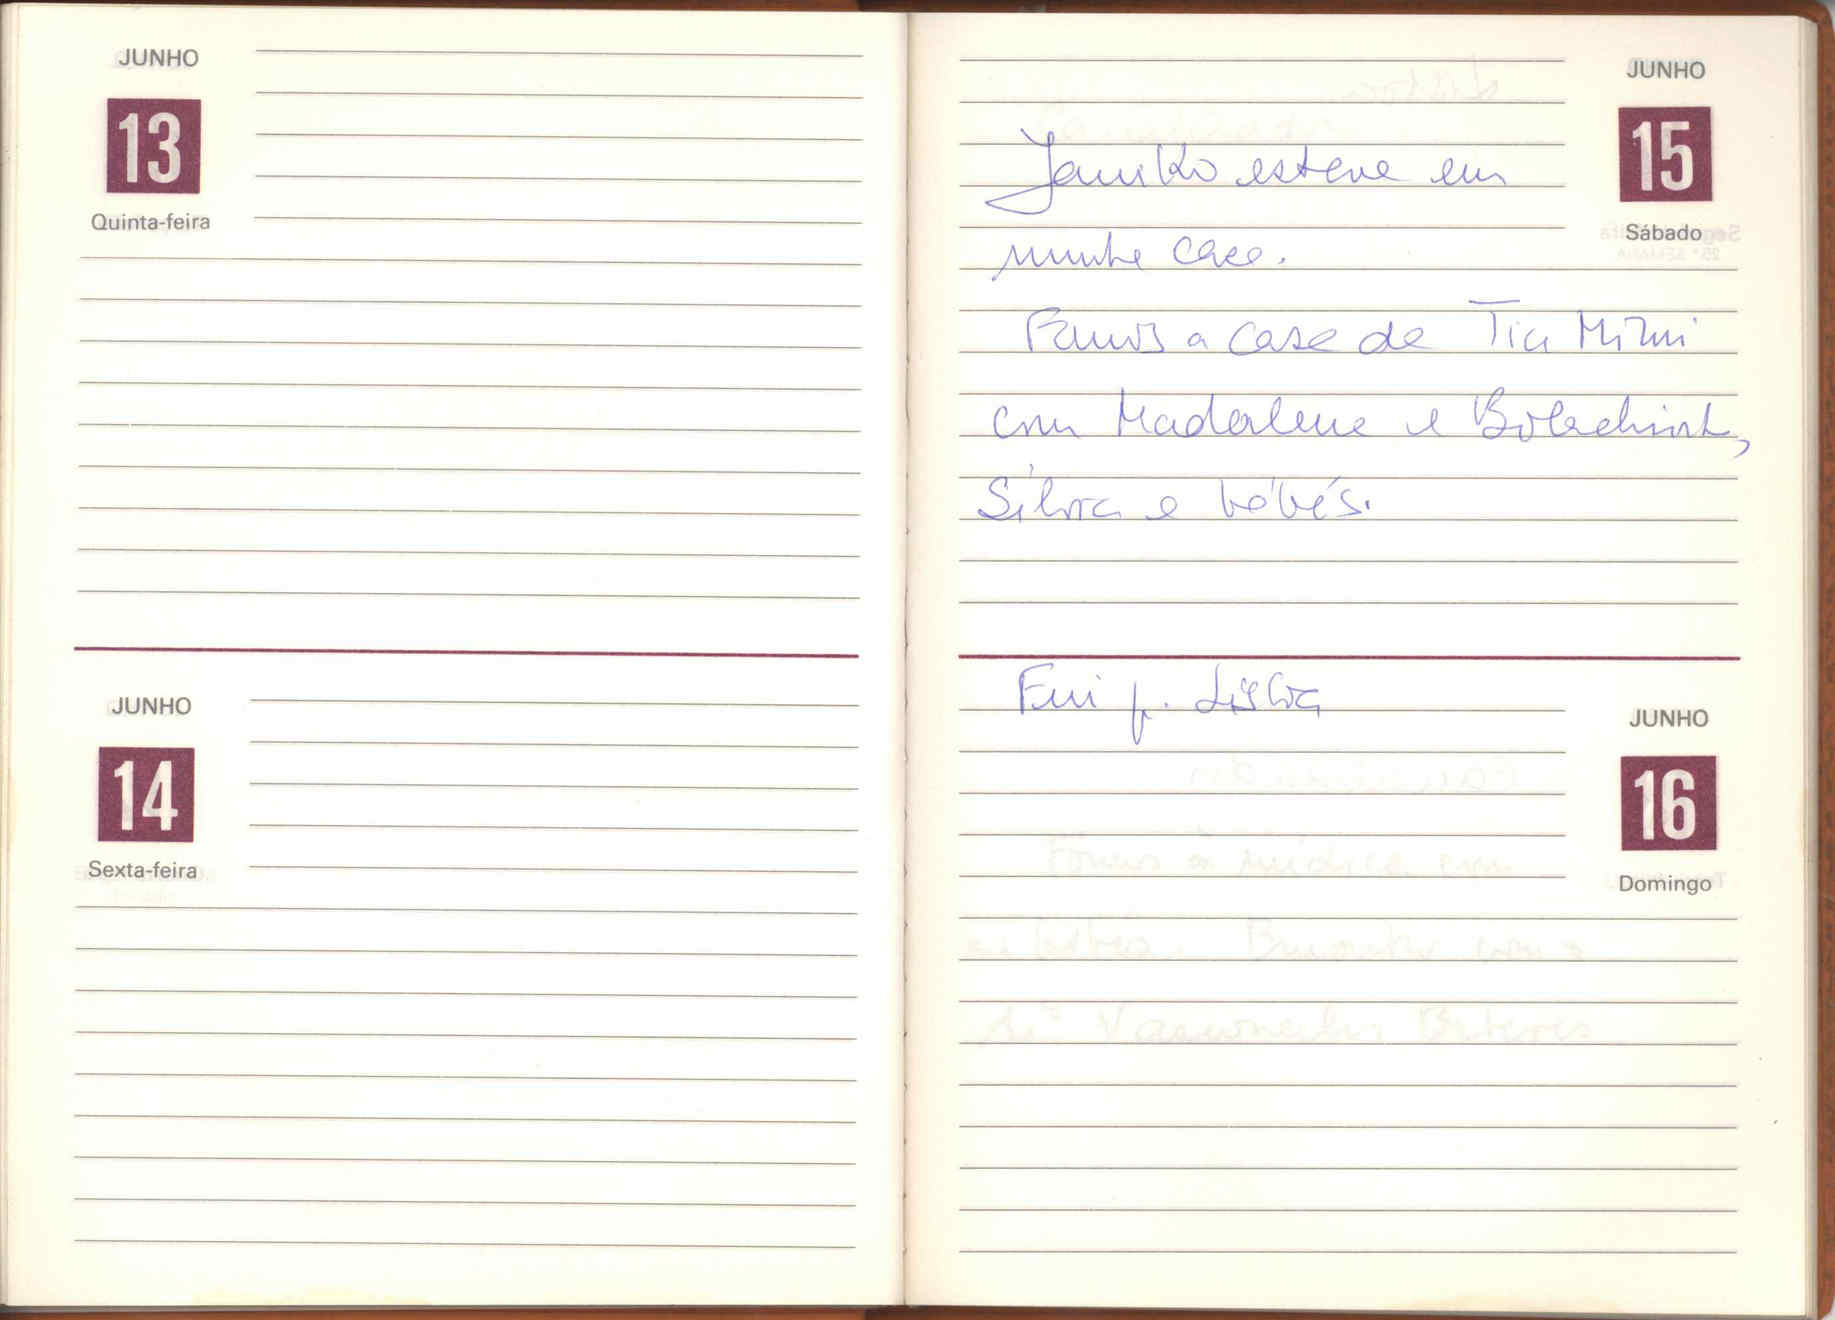 JUNHO
13
Quinta-feira
JUNHO
14
Sexta-feira
JUNHO
15
Sábado
Janiko esteve em
minha casa.
Fomos a casa de Tia Mimi
com Madalena e Bolachinha,
Sílvia e bébés.
JUNHO
16
Domingo
Fui p. Lisboa